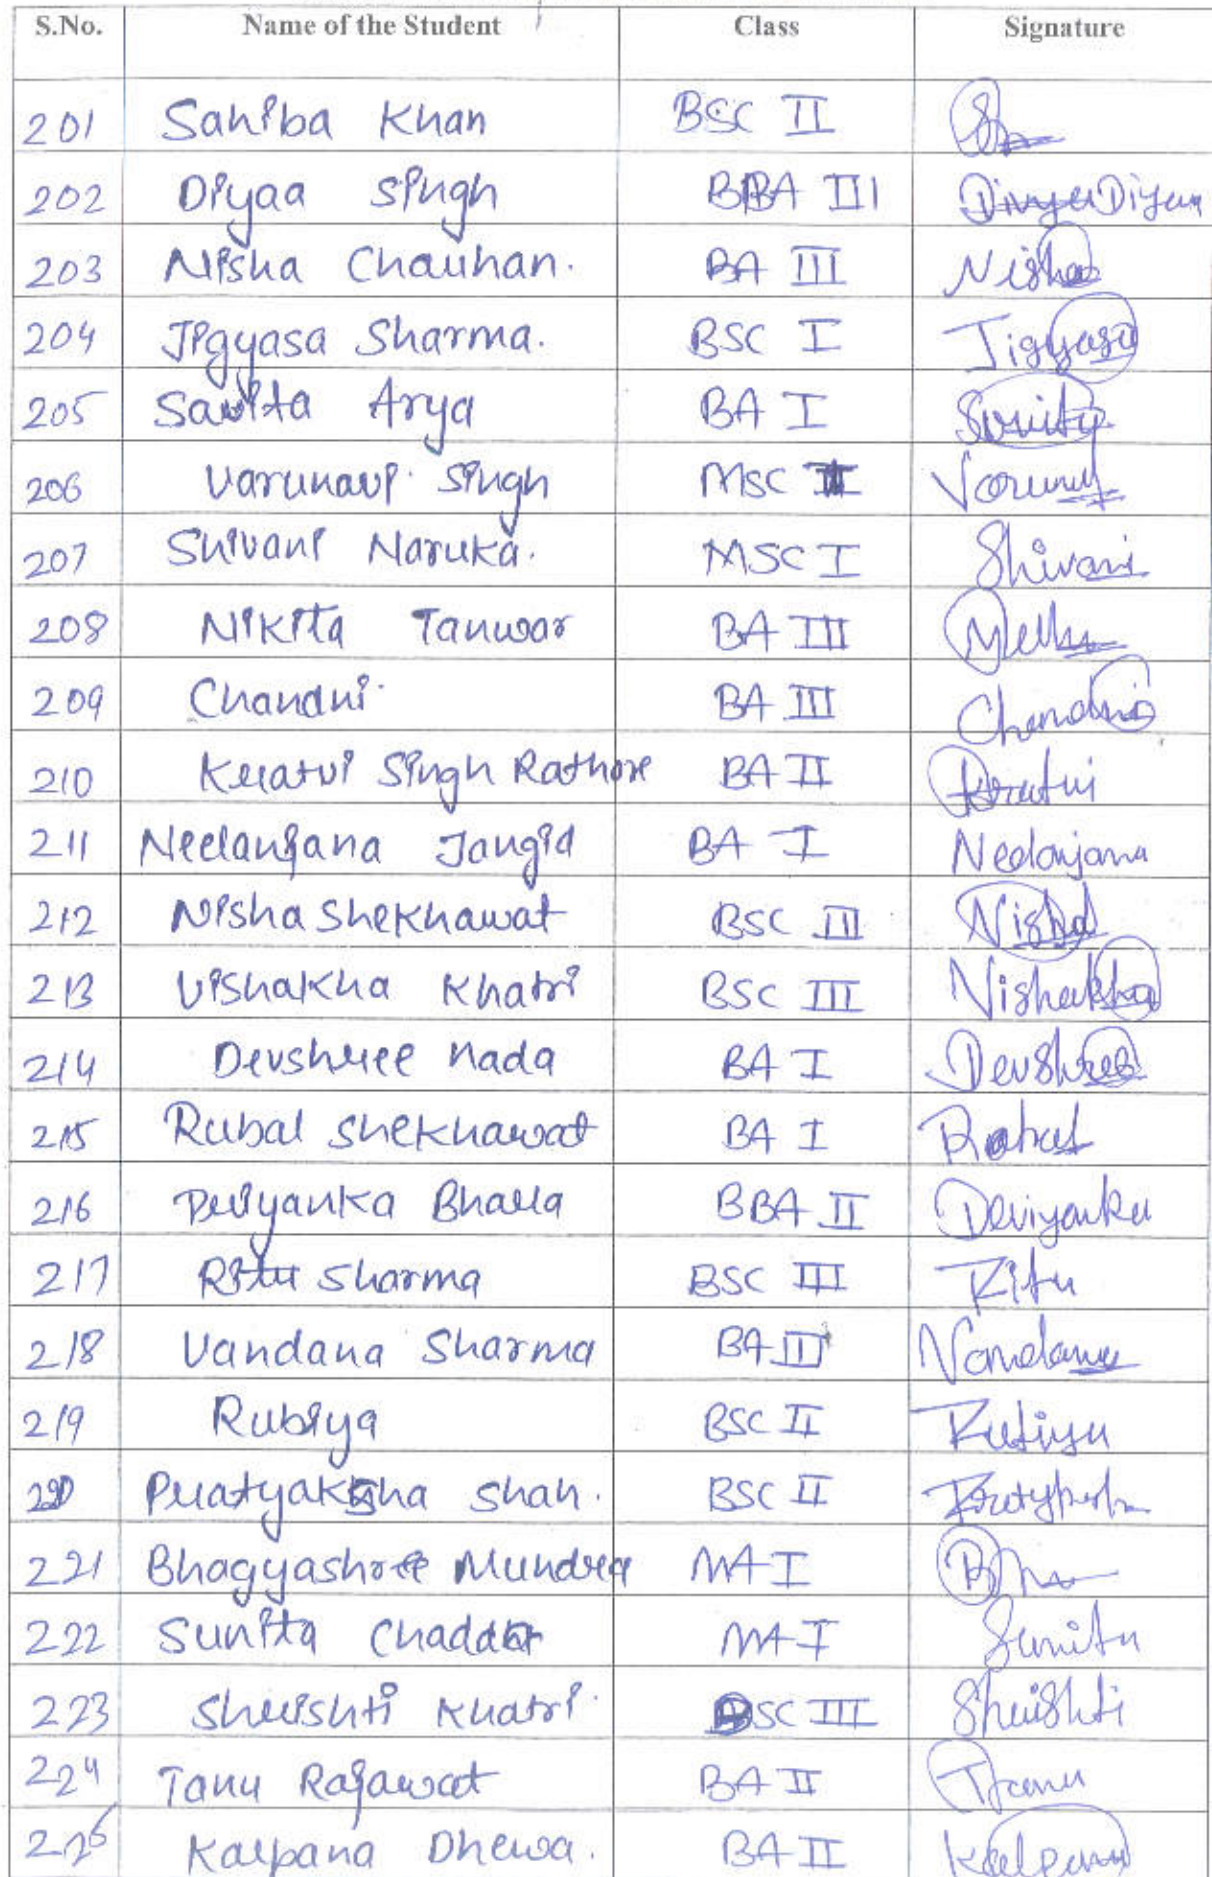 S.No. Name of the Student Class Signature
201 Sahiba Khan BSC II
202 Diyaa Singh BBA III Diyaa
203 Nisha Chauhan. BA III Nisha
204 Jigyasa Sharma. BSC I Jigyasa
205 Savita Arya BA I
206 Varunavi Singh MSC
207 Shivani Naruka. MSC I Shivani
208 Nikita Tanwar BA III
209 Chandni BA III Chandni
210 Kratvi Singh Rathore BA II Kratvi
211 Neelanjana Jangid BA I Neelanjana
212 Nisha Shekhawat BSC III Nisha
213 Vishakha Khatri BSC III Vishakha
214 Devshree Nada BA I Devshree
215 Rubal Shekhawat BA I Rubal
216 Deviyanka Bhalla BBA II Deviyanka
217 Ritu Sharma BSC III Ritu
218 Vandana Sharma BA III Vandana
219 Rubiya BSC II Rubiya
220 Pratyaksha Shah. BSC II
221 Bhagyashree Mundra MA I
222 Sunita MA I Sunita
223 Shrishti Khatri BSC III Shrishti
224 Tanu Rajawat BA II Tanu
225 Kalpana Dhewa. BA II Kalpana